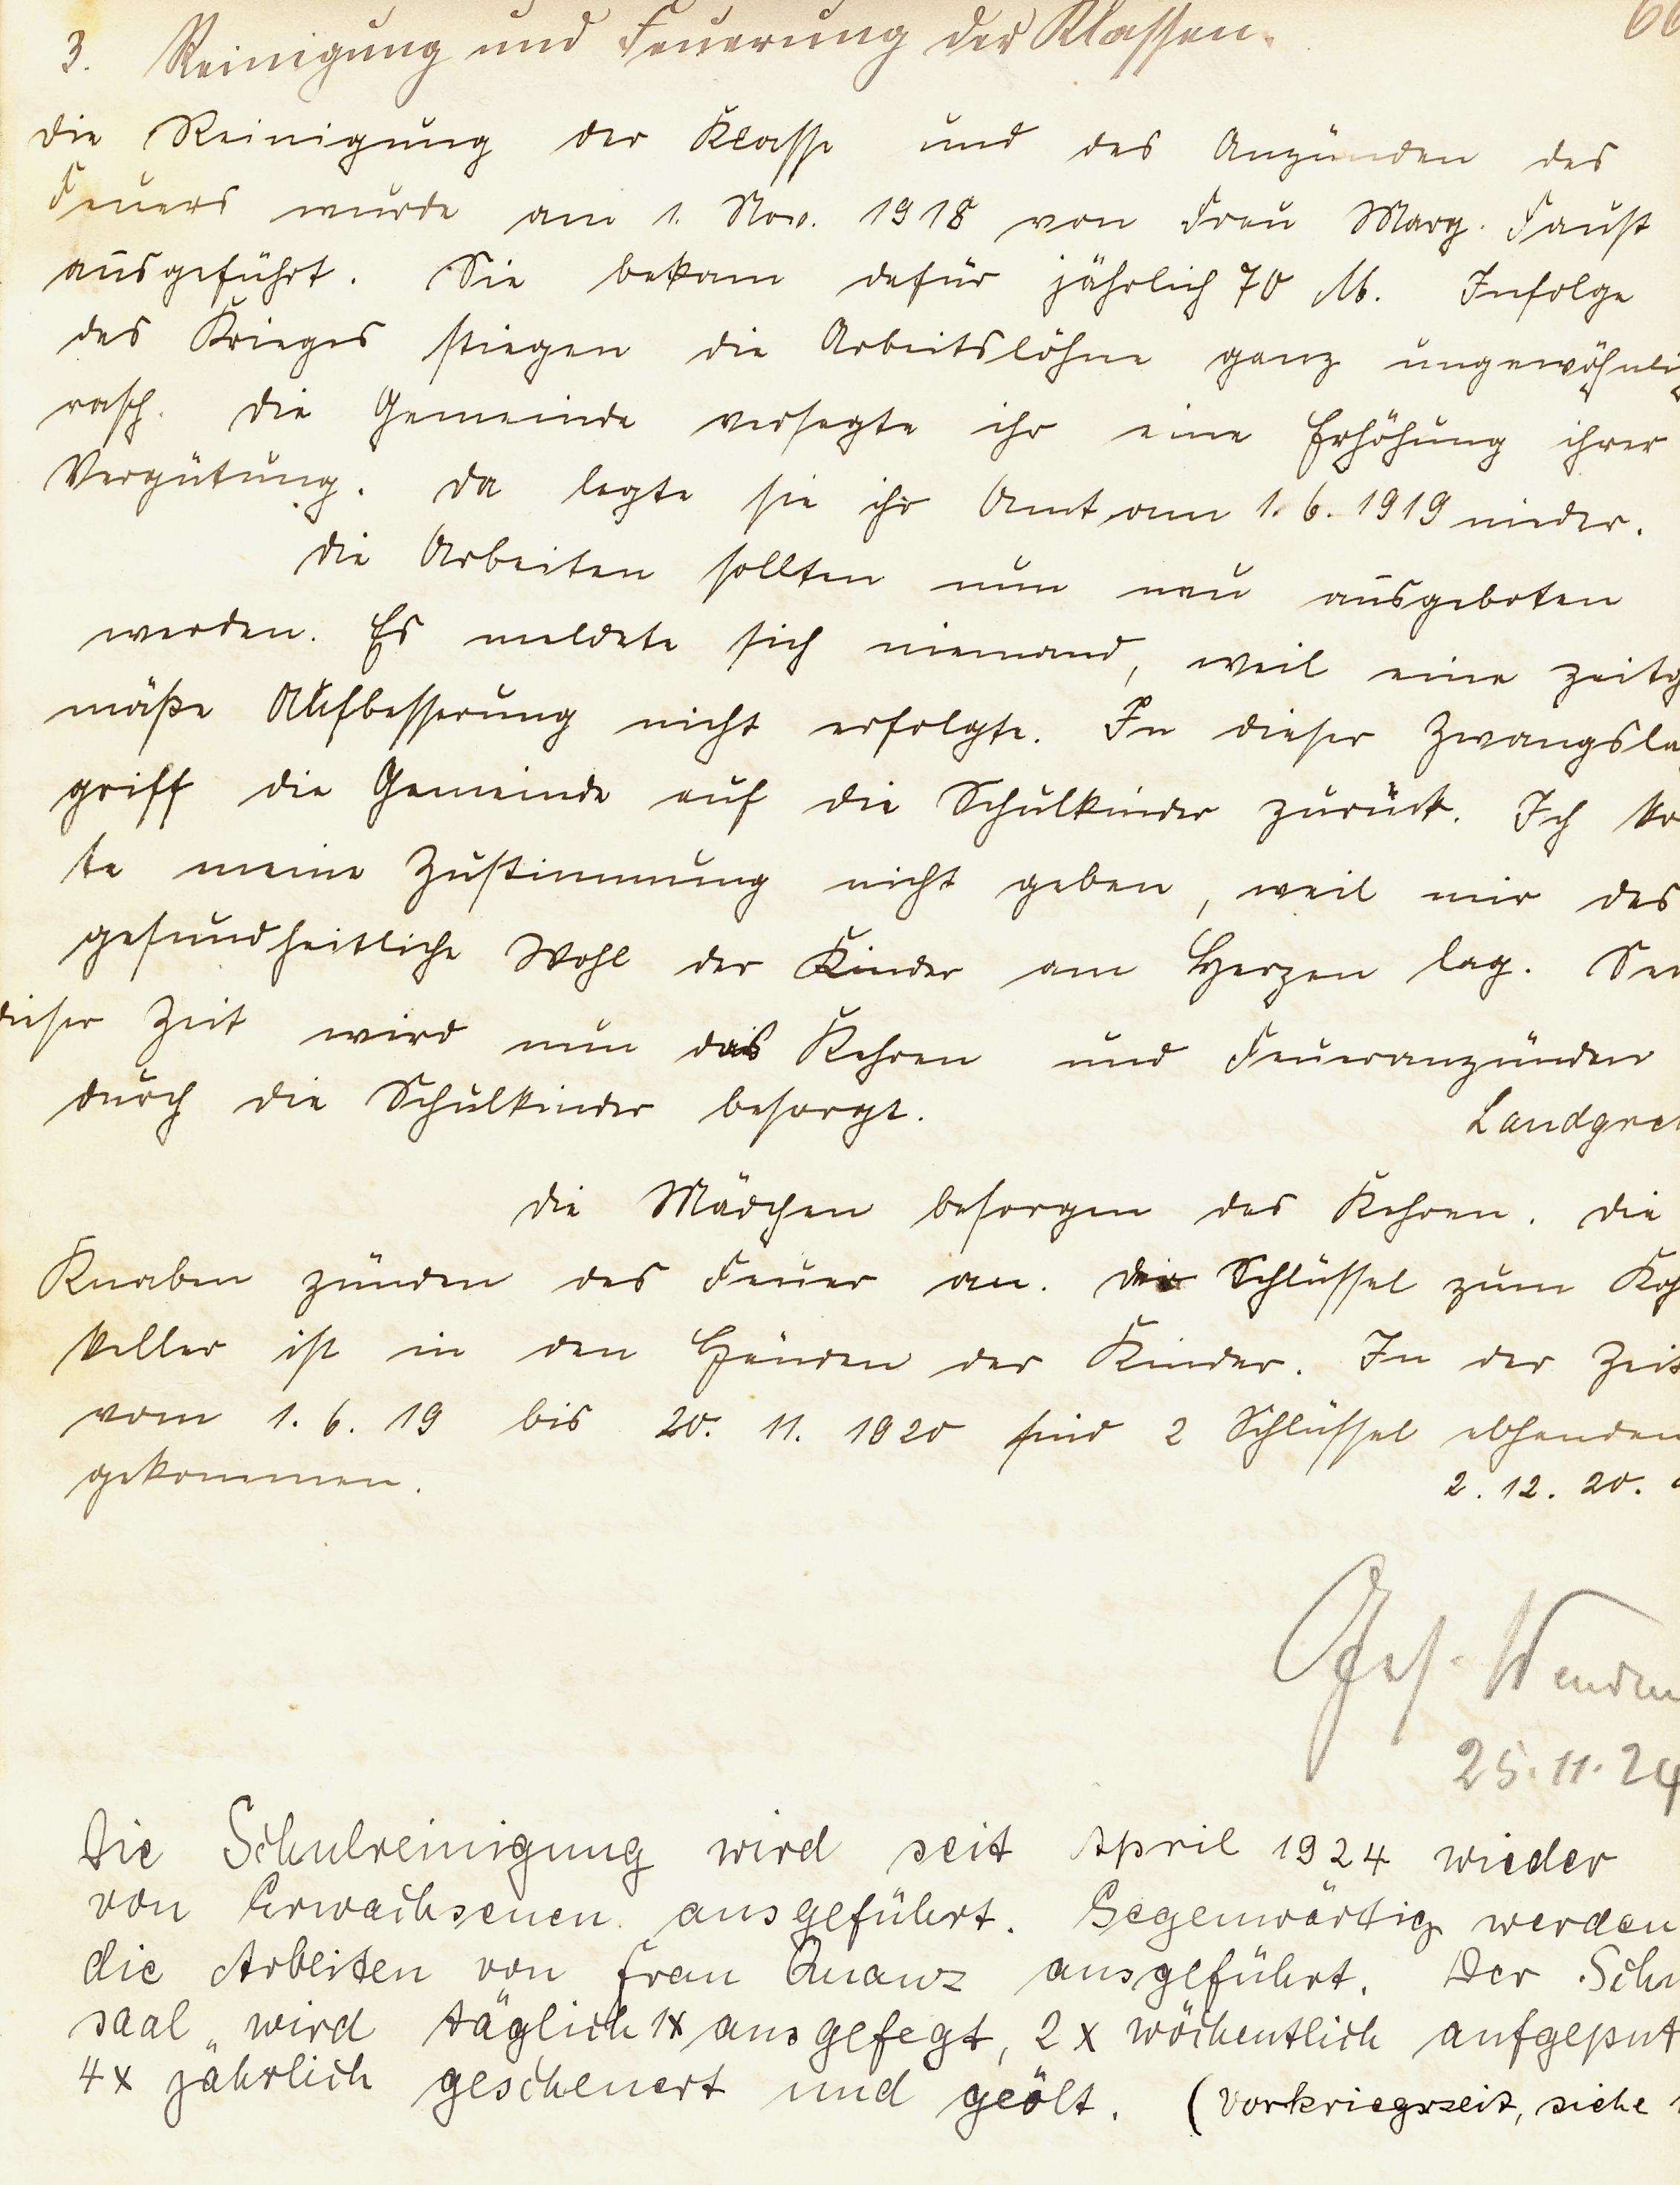 66
3. Reinigung und Feuerung der Klassen.
Die Reinigung der Klasse und das Anzünden des
Feuers wurde am 1. Nov. 1918 von Frau Marg. Faust
ausgeführt. Sie bekam dafür jährlich 70 M. Infolge
des Krieges stiegen die Arbeitslöhne ganz ungewöhnli
rasch. Die Gemeinde versagte ihr eine Erhöhung ihrer
Vergütung. Da legte sie ihr Amt am 1. 6. 1919 nieder.
Die Arbeiten sollten nun neu ausgeboten
werden. Es meldete sich niemand, weil eine zeitg
mäße Aufbesserung nicht erfolgte. In dieser Zwangsla
griff die Gemeinde auf die Schulkinder zurück. Ich ko
te meine Zustimmung nicht geben, weil mir das
gesundheitliche Wohl der Kinder am Herzen lag. Sei
dieser Zeit wird nun das Kehren und Feueranzünden
durch die Schulkinder besorgt.
Landgre
Die Mädchen besorgen das Kehren. Die
Knaben zünden das Feuer an. Der Schlüssel zum Koh
keller ist in den Händen der Kinder. In der Zeit
vom 1. 6. 19 bis 20. 11. 1920 sind 2 Schlüssel abhanden
gekommen.
2. 12. 20.
Ges.
25. 11. 24
Die Schulreinigung wird seit April 1924 wieder
von Erwachsenen ausgeführt. Gegenwärtig werden
die Arbeiten von Frau Quanz ausgeführt. Der Schu
saal wird täglich 1x ausgefegt, 2x wöchentlich aufgeput
4x jährlich gescheuert und geölt. (Vorkriegszeit, siehe